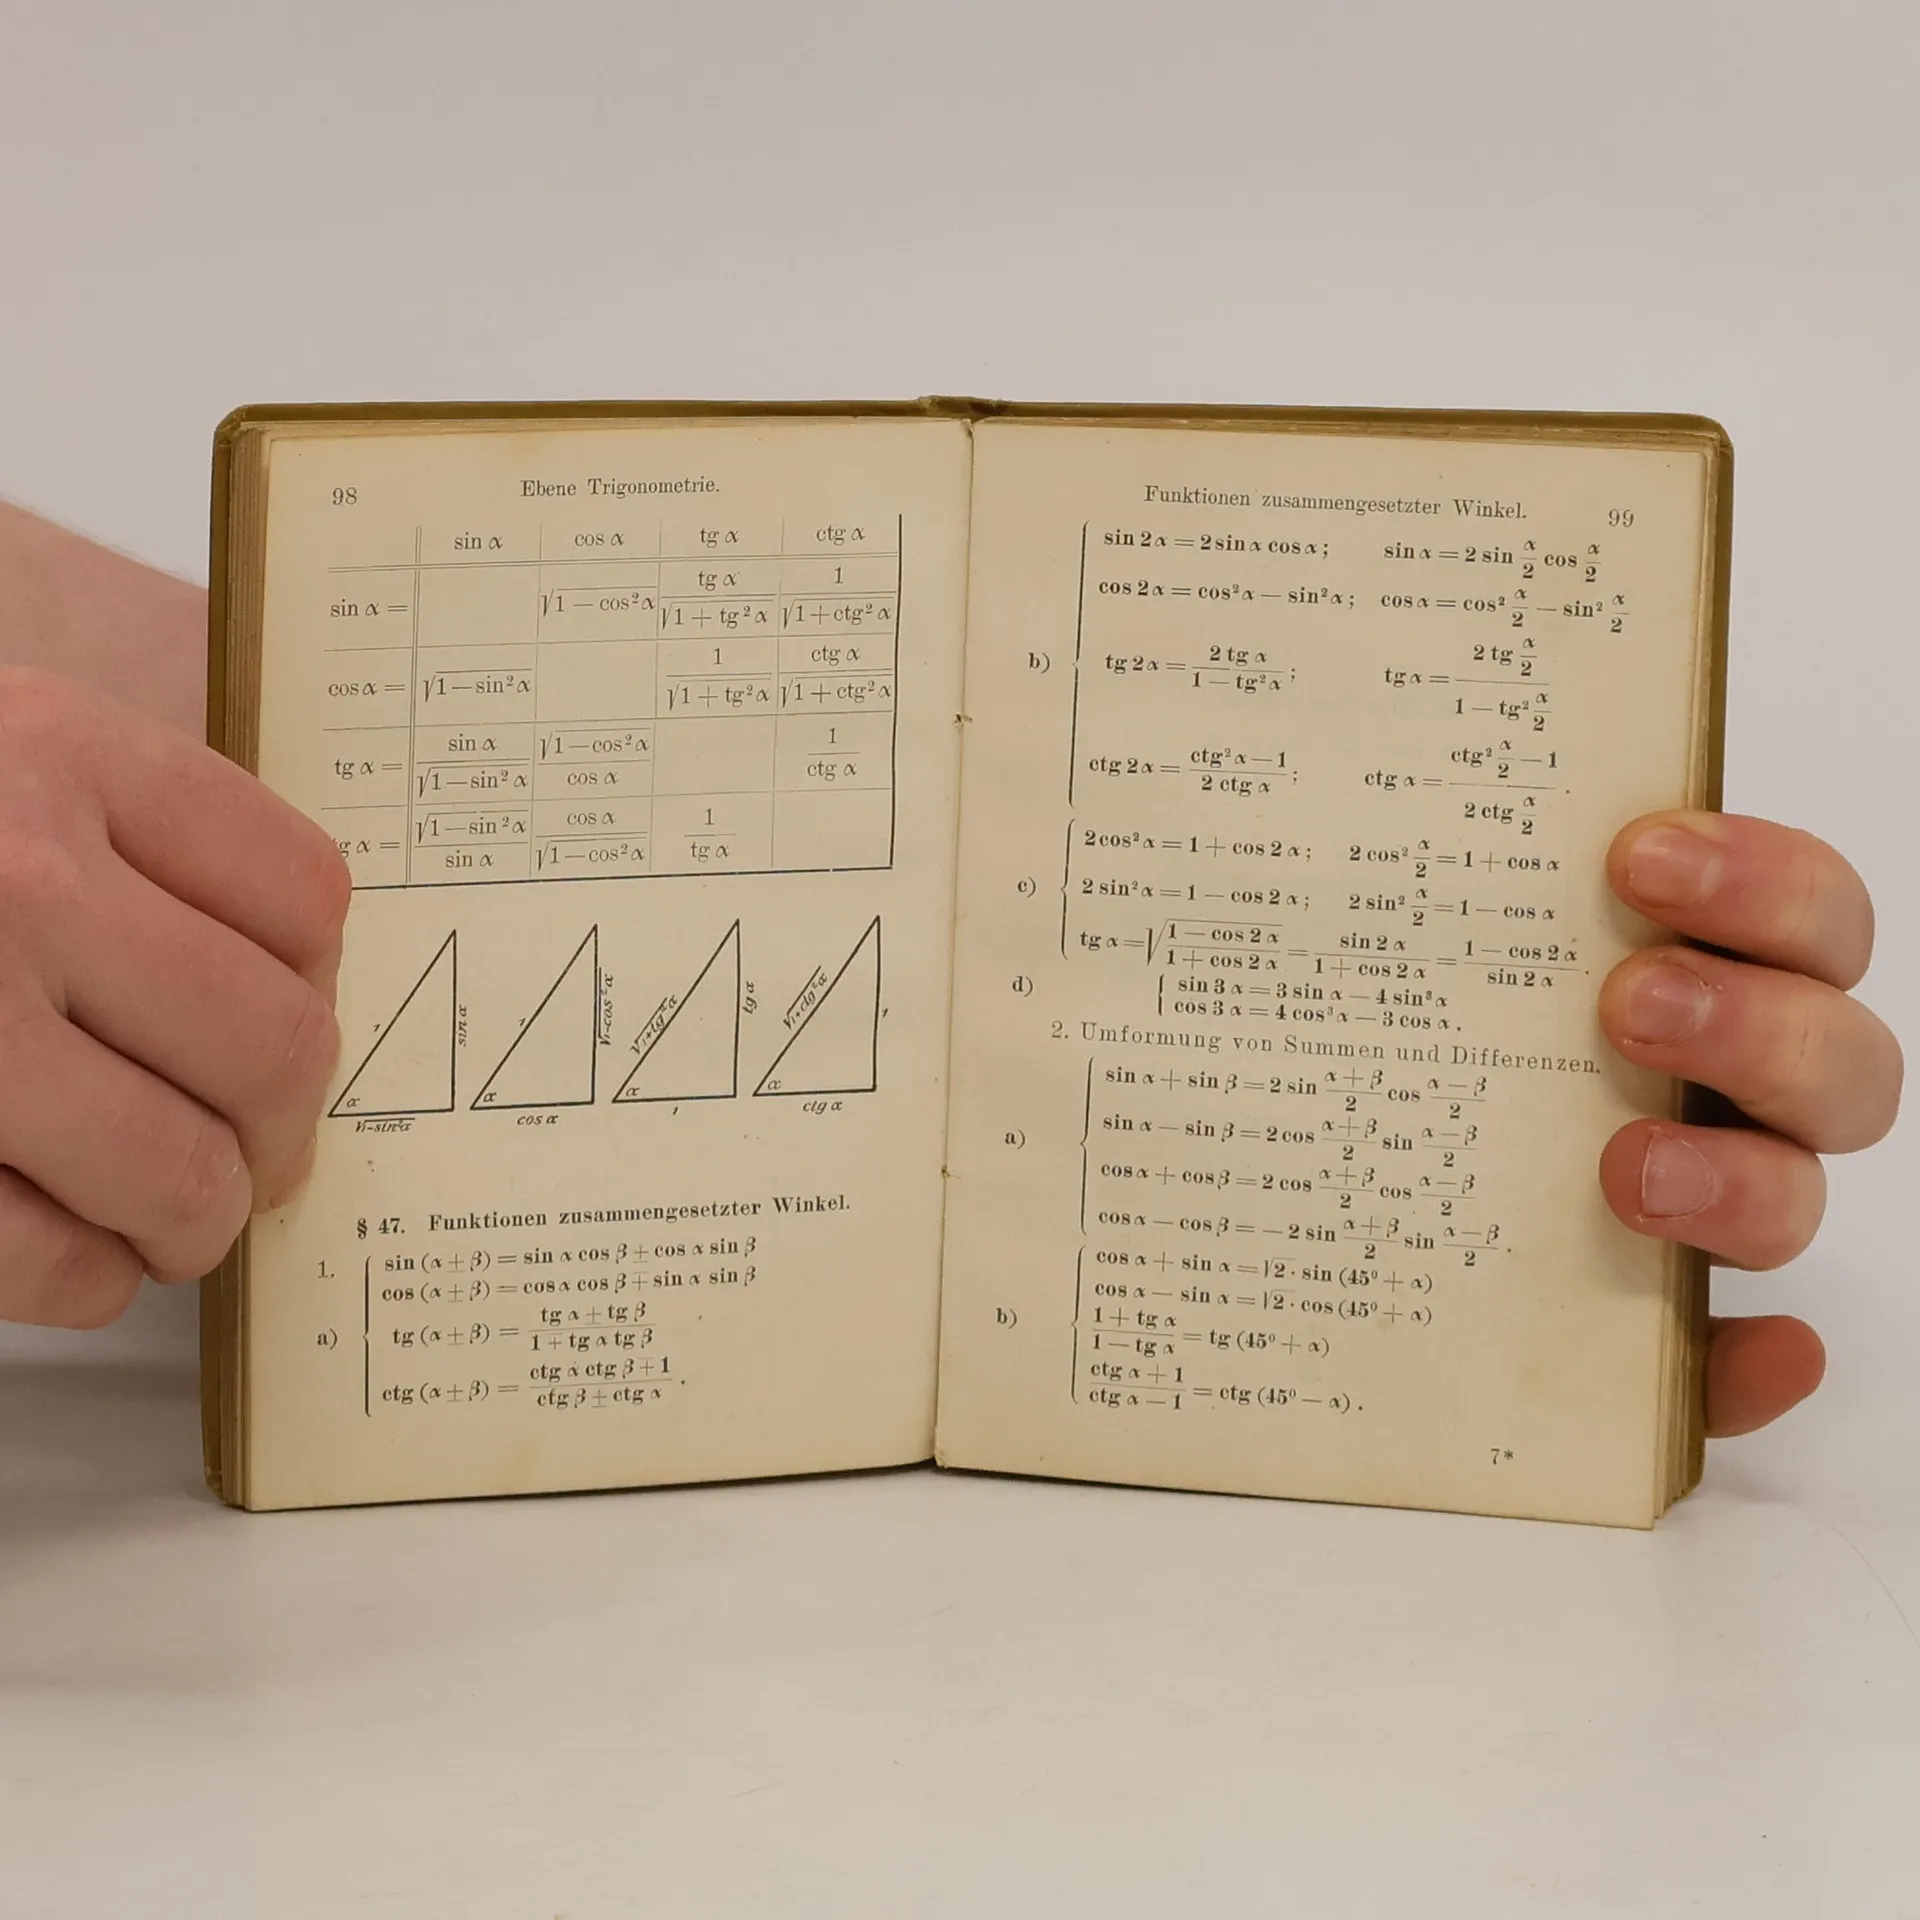 98 Ebene Trigonometrie.
sin α cos α tg α ctg α
sin α = √1 − cos²α tg α / √1 + tg²α 1 / √1 + ctg²α
cos α = √1 − sin²α 1 / √1 + tg²α ctg α / √1 + ctg²α
tg α = sin α / √1 − sin²α √1 − cos²α / cos α 1 / ctg α
tg α = √1 − sin²α / sin α cos α / √1 − cos²α 1 / tg α
1 sin α α √1−sin²α
1 √1−cos²α α cos α
√1+tg²α tg α α 1
√1+ctg²α 1 α ctg α
§ 47. Funktionen zusammengesetzter Winkel.
1.
a)
sin (α ± β) = sin α cos β ± cos α sin β
cos (α ± β) = cos α cos β ∓ sin α sin β
tg (α ± β) = tg α ± tg β / 1 ∓ tg α tg β
ctg (α ± β) = ctg α ctg β ∓ 1 / ctg β ± ctg α .
Funktionen zusammengesetzter Winkel. 99
b)
sin 2α = 2 sin α cos α; sin α = 2 sin α/2 cos α/2
cos 2α = cos²α − sin²α; cos α = cos² α/2 − sin² α/2
tg 2α = 2 tg α / 1 − tg²α; tg α = 2 tg α/2 / 1 − tg² α/2
ctg 2α = ctg²α − 1 / 2 ctg α; ctg α = ctg² α/2 − 1 / 2 ctg α/2 .
c)
2 cos²α = 1 + cos 2α; 2 cos² α/2 = 1 + cos α
2 sin²α = 1 − cos 2α; 2 sin² α/2 = 1 − cos α
tg α = √1 − cos 2α / 1 + cos 2α = sin 2α / 1 + cos 2α = 1 − cos 2α / sin 2α .
d)
sin 3α = 3 sin α − 4 sin³α
cos 3α = 4 cos³α − 3 cos α.
2. Umformung von Summen und Differenzen.
a)
sin α + sin β = 2 sin α + β / 2 cos α − β / 2
sin α − sin β = 2 cos α + β / 2 sin α − β / 2
cos α + cos β = 2 cos α + β / 2 cos α − β / 2
cos α − cos β = − 2 sin α + β / 2 sin α − β / 2 .
b)
cos α + sin α = √2 · sin (45° + α)
cos α − sin α = √2 · cos (45° + α)
1 + tg α / 1 − tg α = tg (45° + α)
ctg α + 1 / ctg α − 1 = ctg (45° − α).
7*